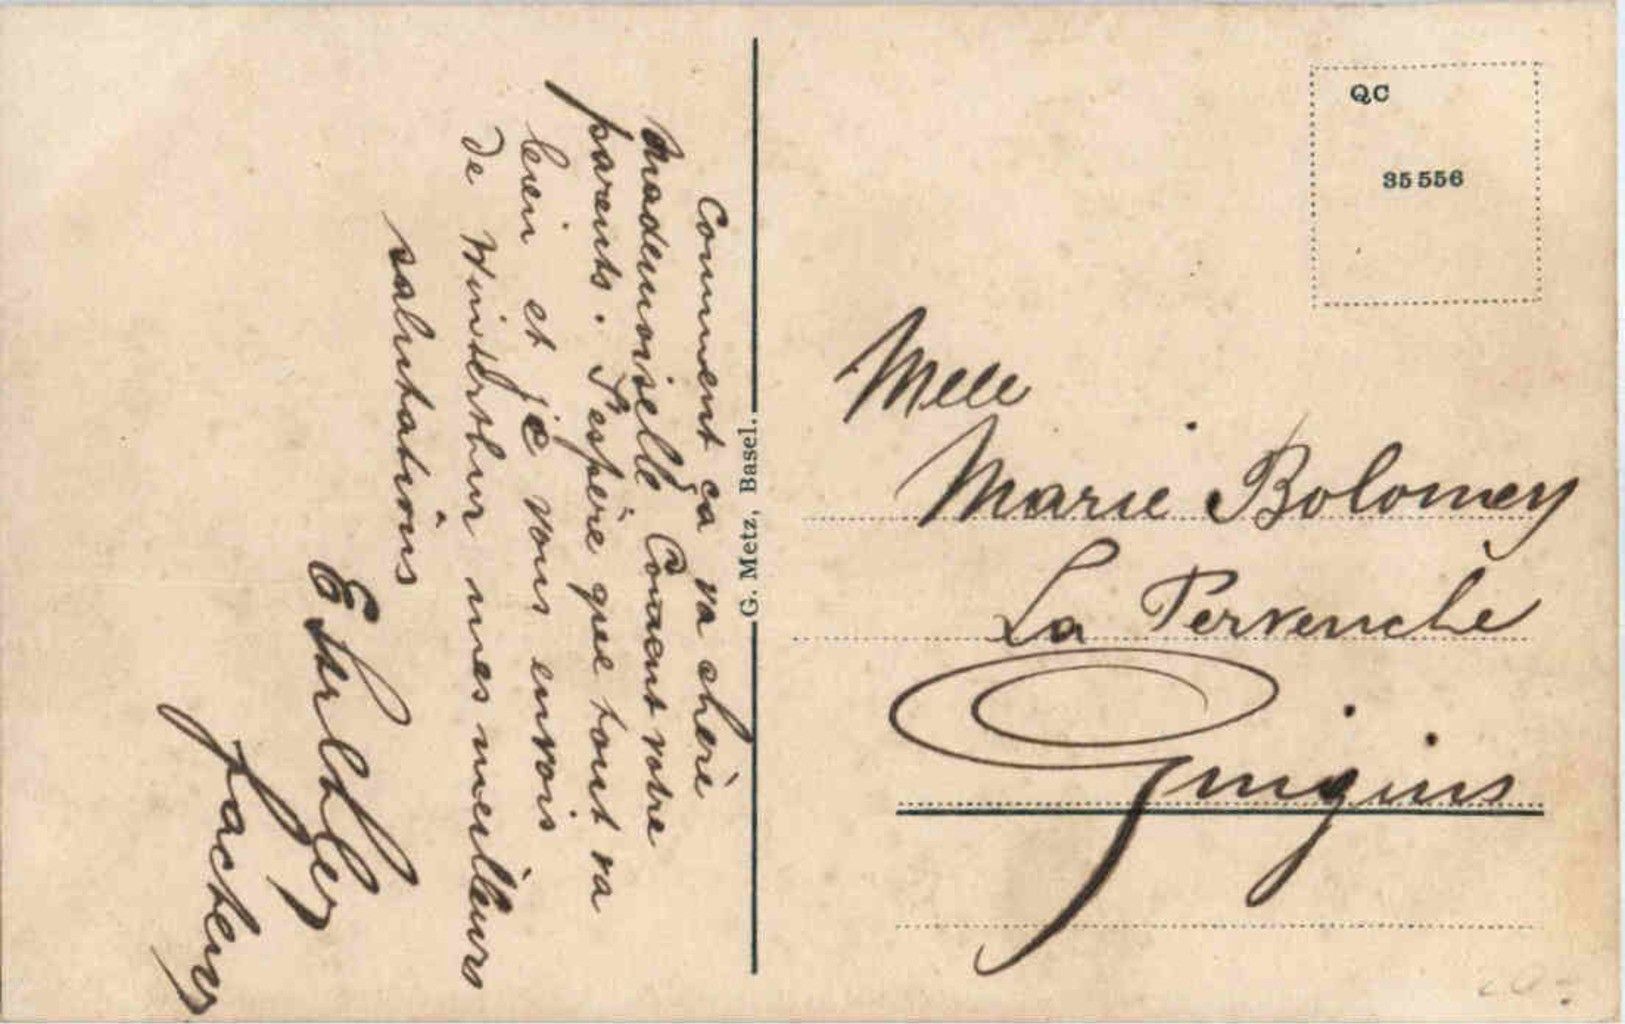 Comment ça va chère
Mademoiselle Coment votre
parents. J'espère que tout va
bien et je vous envois
de Winterthur mes meilleurs
salutations
G. Metz, Basel.
QC
35 556
Melle
Marie Bolomey
La Pervenche
Gingins